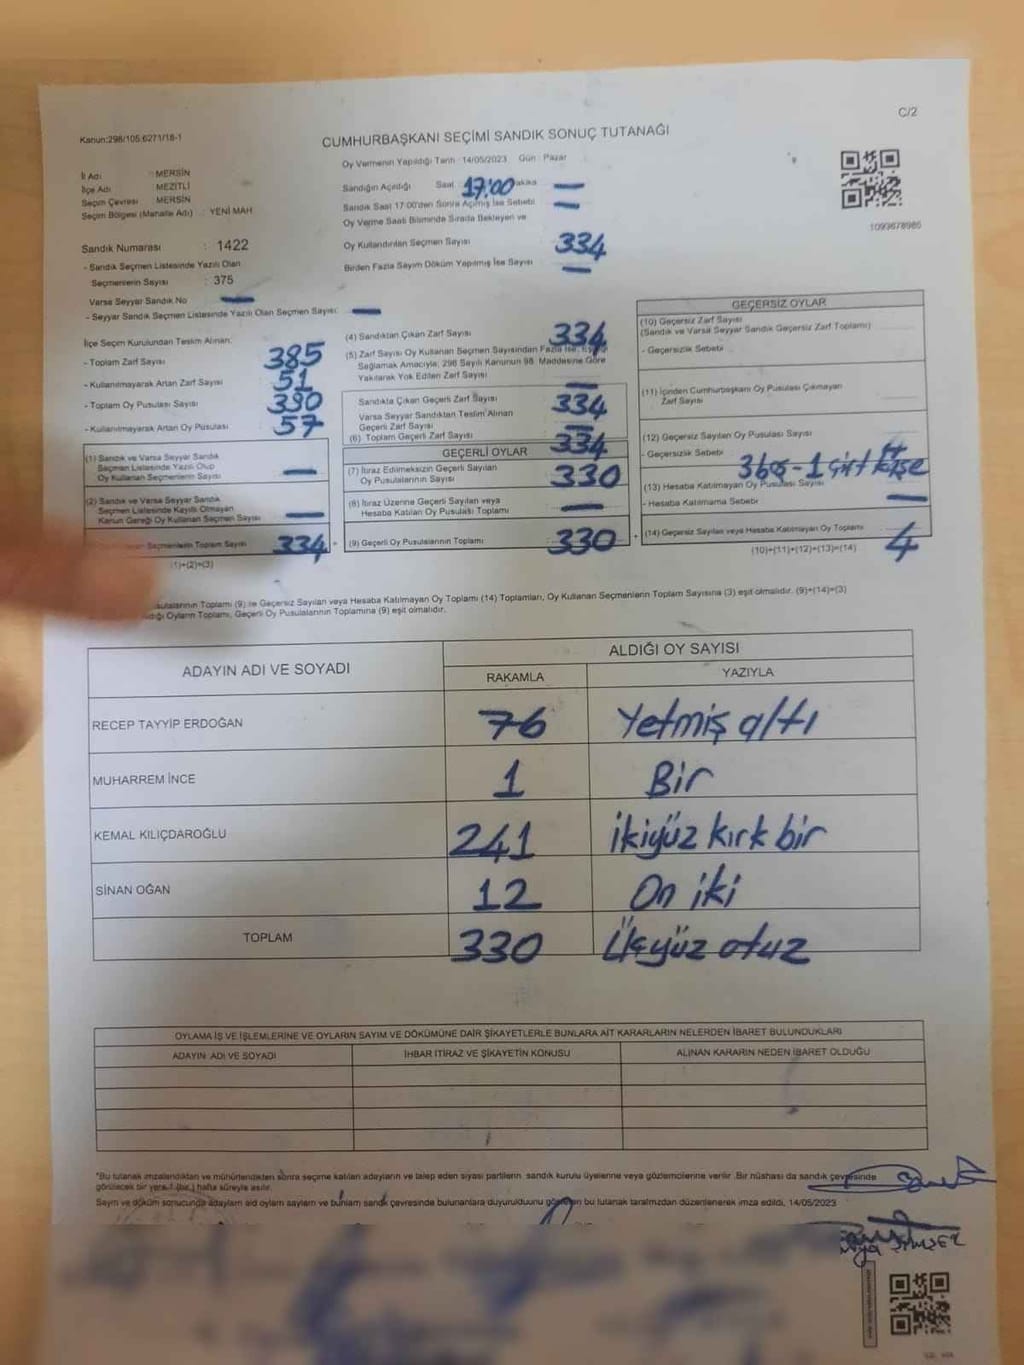 C/2
Kanun:298/105.6271/18-1
CUMHURBAŞKANI SEÇİMİ SANDIK SONUÇ TUTANAĞI
Oy Vermenin Yapıldığı Tarih : 14/05/2023 Gün : Pazar
İl Adı : MERSİN
İlçe Adı : MEZİTLİ
Seçim Çevresi : MERSİN
Seçim Bölgesi (Mahalle Adı) : YENİ MAH
Sandık Numarası : 1422
- Sandık Seçmen Listesinde Yazılı Olan
Seçmenlerin Sayısı : 375
Varsa Seyyar Sandık No —
- Seyyar Sandık Seçmen Listesinde Yazılı Olan Seçmen Sayısı: —
Sandığın Açıldığı Saat : 17:00 Dakika —
Sandık Saat 17:00'den Sonra Açılmış İse Sebebi —
Oy Verme Saati Bitiminde Sırada Bekleyen ve
Oy Kullandırılan Seçmen Sayısı 334
Birden Fazla Sayım Döküm Yapılmış İse Sayısı —
1099678985
İlçe Seçim Kurulundan Teslim Alınan:
- Toplam Zarf Sayısı 385
- Kullanılmayarak Artan Zarf Sayısı 51
- Toplam Oy Pusulası Sayısı 390
- Kullanılmayarak Artan Oy Pusulası 57
(1) Sandık ve Varsa Seyyar Sandık
Seçmen Listesinde Yazılı Olup
Oy Kullanan Seçmenlerin Sayısı —
(2) Sandık ve Varsa Seyyar Sandık
Seçmen Listesinde Kayıtlı Olmayan
Kanun Gereği Oy Kullanan Seçmen Sayısı —
Seçmenlerin Toplam Sayısı 334
(1)+(2)=(3)
(4) Sandıktan Çıkan Zarf Sayısı 334
(5) Zarf Sayısı Oy Kullanan Seçmen Sayısından Fazla İse,
Sağlamak Amacıyla; 298 Sayılı Kanunun 98. Maddesine Göre
Yakılarak Yok Edilen Zarf Sayısı —
Sandıkta Çıkan Geçerli Zarf Sayısı 334
Varsa Seyyar Sandıktan Teslim Alınan
Geçerli Zarf Sayısı —
(6) Toplam Geçerli Zarf Sayısı 334
GEÇERLİ OYLAR
(7) İtiraz Edilmeksizin Geçerli Sayılan
Oy Pusulasının Sayısı 330
(8) İtiraz Üzerine Geçerli Sayılan veya
Hesaba Katılan Oy Pusulası Toplamı —
(9) Geçerli Oy Pusulalarının Toplamı 330
GEÇERSİZ OYLAR
(10) Geçersiz Zarf Sayısı
(Sandık ve Varsa Seyyar Sandık Geçersiz Zarf Toplamı)
- Geçersizlik Sebebi
(11) İçinden Cumhurbaşkanı Oy Pusulası Çıkmayan
Zarf Sayısı
(12) Geçersiz Sayılan Oy Pusulası Sayısı
- Geçersizlik Sebebi 3 boş - 1 çift
(13) Hesaba Katılmayan Oy Pusulası Sayısı
- Hesaba Katılmama Sebebi —
(14) Geçersiz Sayılan veya Hesaba Katılmayan Oy Toplamı 4
(10)+(11)+(12)+(13)=(14)
Toplamı (9) ile Geçersiz Sayılan veya Hesaba Katılmayan Oy Toplamı (14) Toplamları, Oy Kullanan Seçmenlerin Toplam Sayısına (3) eşit olmalıdır. (9)+(14)=(3)
Oyların Toplamı, Geçerli Oy Pusulalarının Toplamına (9) eşit olmalıdır.
ADAYIN ADI VE SOYADI ALDIĞI OY SAYISI
RAKAMLA YAZIYLA
RECEP TAYYİP ERDOĞAN 76 Yetmiş altı
MUHARREM İNCE 1 Bir
KEMAL KILIÇDAROĞLU 241 ikiyüz kırk bir
SİNAN OĞAN 12 On iki
TOPLAM 330 Üçyüz otuz
OYLAMA İŞ VE İŞLEMLERİNE VE OYLARIN SAYIM VE DÖKÜMÜNE DAİR ŞİKAYETLERLE BUNLARA AİT KARARLARIN NELERDEN İBARET BULUNDUKLARI
ADAYIN ADI VE SOYADI İHBAR İTİRAZ VE ŞİKAYETİN KONUSU ALINAN KARARIN NEDEN İBARET OLDUĞU
*Bu tutanak imzalandıktan ve mühürlendikten sonra seçime katılan adayların ve talep eden siyasi partilerin sandık kurulu üyelerine veya gözlemcilerine verilir. Bir nüshası da sandık çevresinde
görülecek bir yere 1 (bir) hafta süreyle asılır.
Sayım ve döküm sonucunda adayların aldı oyların sayıları ve bunların sandık çevresinde bulunanlara duyurulduunu gösteren bu tutanak tarafımızdan düzenlenerek imza edildi, 14/05/2023